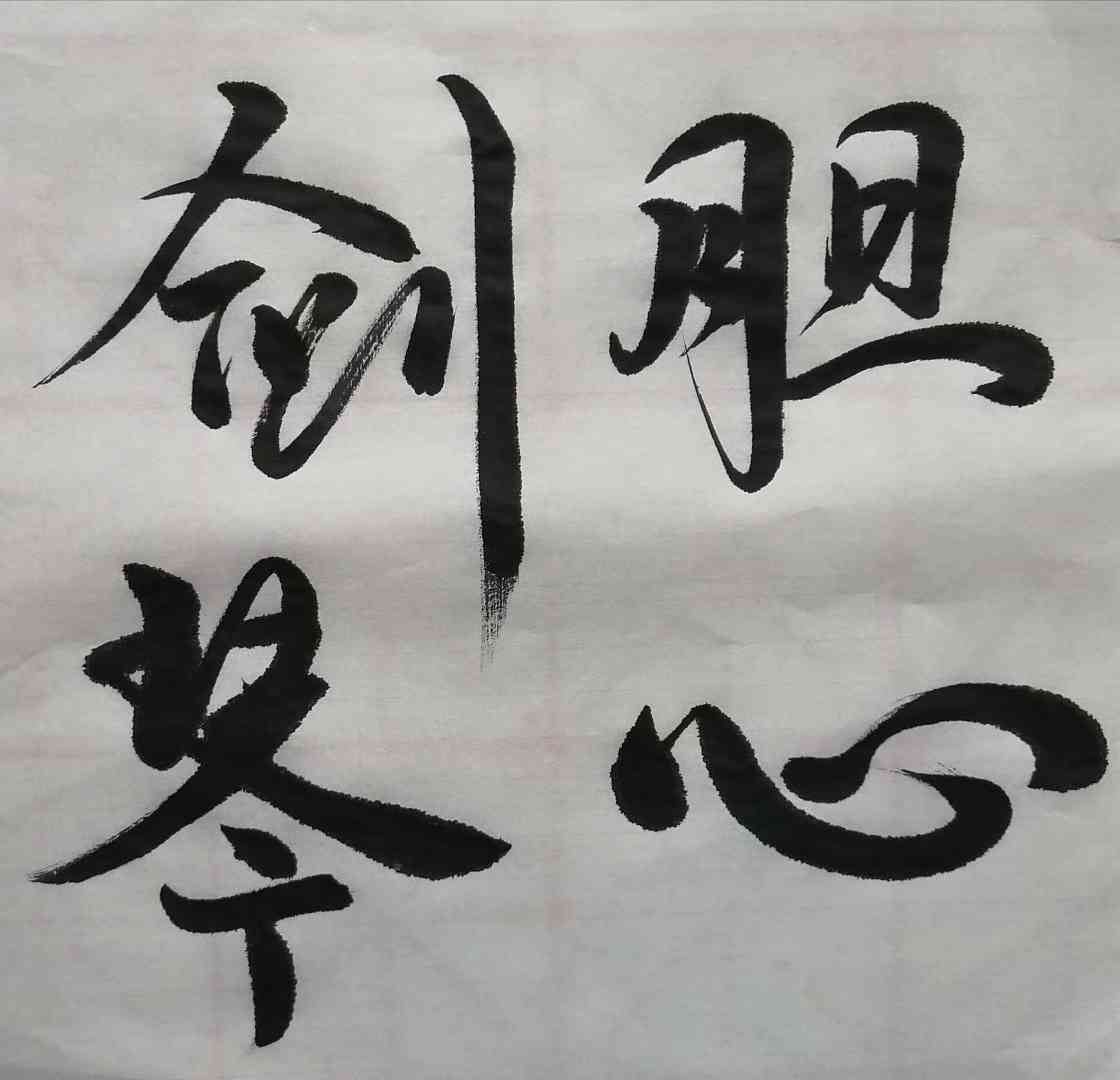 剑胆
琴心